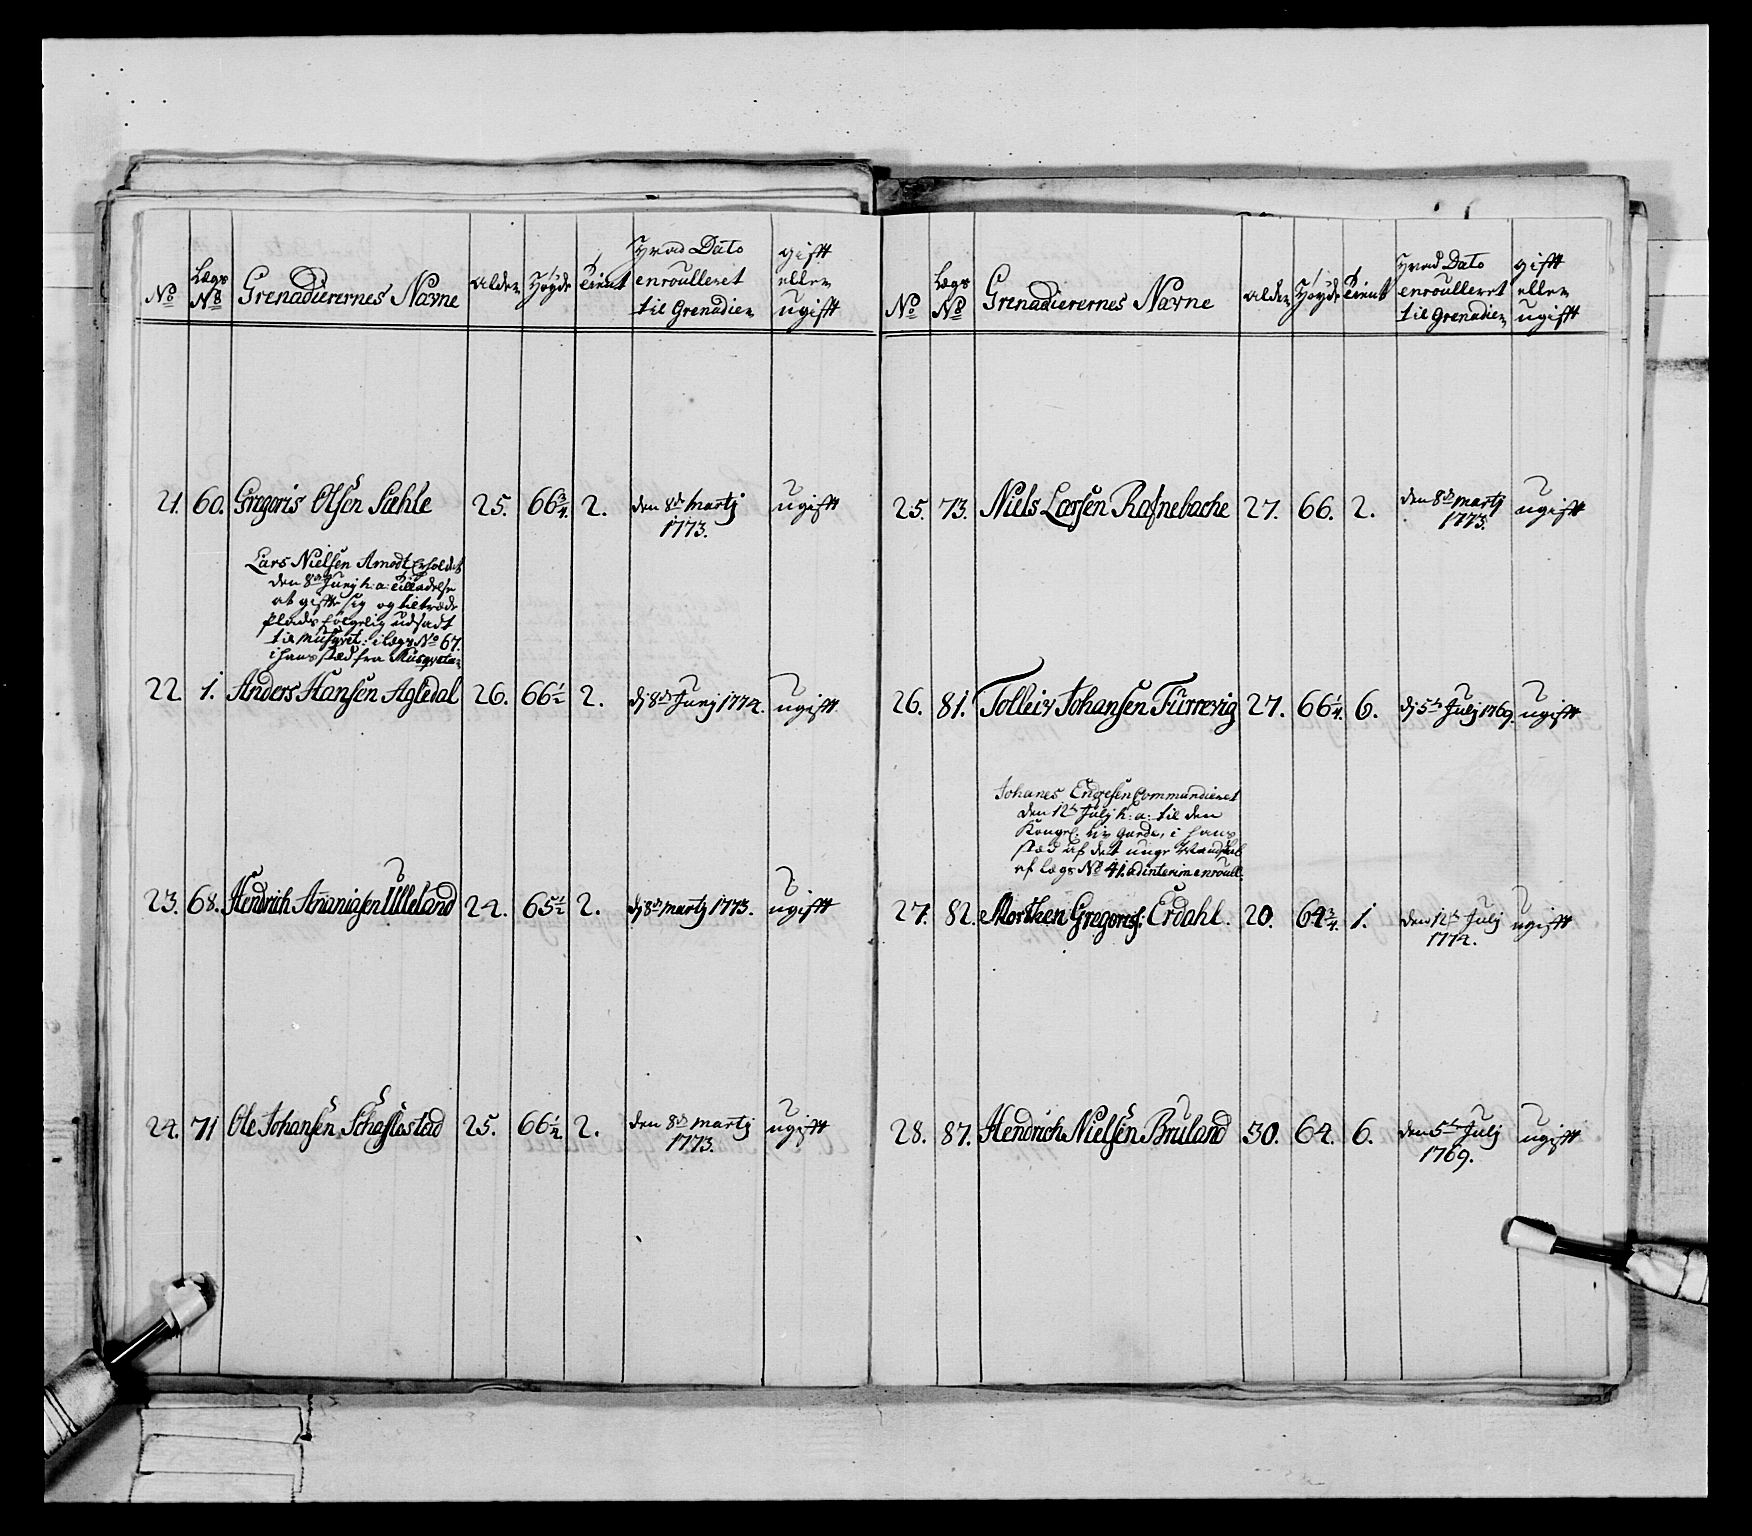 No Lægs No Grenadierernes Navne Alder Høyde Tient Hvad Dato enroulleret til Grenadier gift eller ugift
21. 60. Gregoris Olsen Sæhle 25. 66 3/4. 2. den 8de Martj 1773. ugift
Lars Nielsen Amodt Erholdet
den 8de Junj h: a: Tilladelse
at gifte sig og tiltræde
Plads følgelig udsadt
til Musqvet: i lægs No 67.
i hans stæd fra Musqveter
22. 1. Anders Hansen Agledal 26. 66 1/2 2. dj 8de Junj 1774. ugift
23. 68. Hendrich Ananiasen Ulleland 24. 65 1/2 2. dj 8de Martj 1773. ugift
24. 71 Ole Johansen Schaflestad 25. 66 1/2. 2. den 8de Martj 1773. ugift
No Lægs No Grenadierernes Navne Alder Høyde Tient Hvad Dato enroulleret til Grenadier gift eller ugift
25. 73. Niels Larsen Rafnebache 27. 66. 2. den 8de Martj 1773. ugift
26. 81. Tolleiv Johansen Turrevig 27. 66 1/4. 6. dj 5te Julj 1769. ugift
Johanes Endresen Commandieret
den 12te Julj h: a: til den
Kongel: Liv Garde, i hans
stæd af det unge Mandskab
af lægs No 41. ad interim enroull:
27. 82. Morthen Gregoris: Erdahl. 20. 64 3/4. 1. den 12te Julj 1774. ugift
28. 87. Hendrich Nielsen Bruland 30. 64. 6. den 5te Julj 1769. ugift